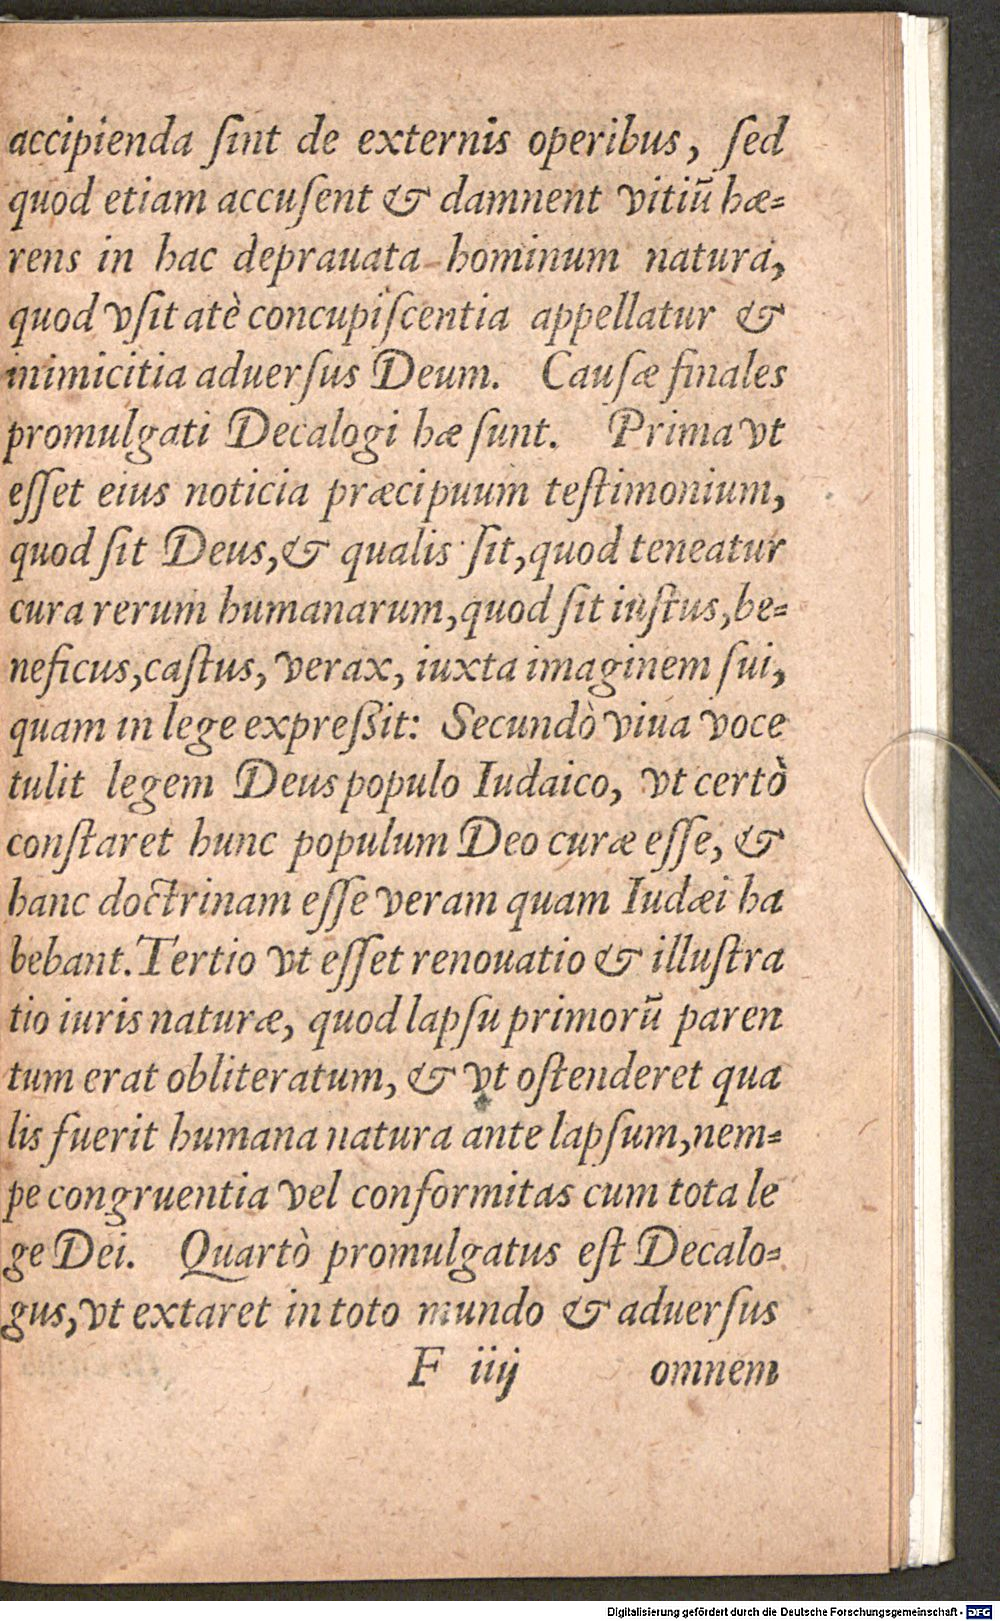 accipienda ſint de externis operibus, ſed
quod etiam accuſent & damnent vitiū hæ=
rens in hac deprauata hominum natura,
quod vſitatè concupiſcentia appellatur &
inimicitia aduerſus Deum. Cauſæ finales
promulgati Decalogi hæ ſunt. Prima vt
eſſet eius noticia præcipuum teſtimonium,
quod ſit Deus,& qualis ſit,quod teneatur
cura rerum humanarum,quod ſit iuſtus,be=
neficus,caſtus, verax, iuxta imaginem ſui,
quam in lege expreßit: Secundò viua voce
tulit legem Deus populo Iudaico, vt certò
conſtaret hunc populum Deo curæ eſſe, &
hanc doctrinam eſſe veram quam Iudæi ha
bebant. Tertio vt eſſet renouatio & illuſtra
tio iuris naturæ, quod lapſu primorū paren
tum erat obliteratum, & vt oſtenderet qua
lis fuerit humana natura ante lapſum,nem=
pe congruentia vel conformitas cum tota le
ge Dei. Quartò promulgatus eſt Decalo=
gus,vt extaret in toto mundo & aduerſus
F iiij omnem
Digitalisierung gefördert durch die Deutsche Forschungsgemeinschaft - DFG